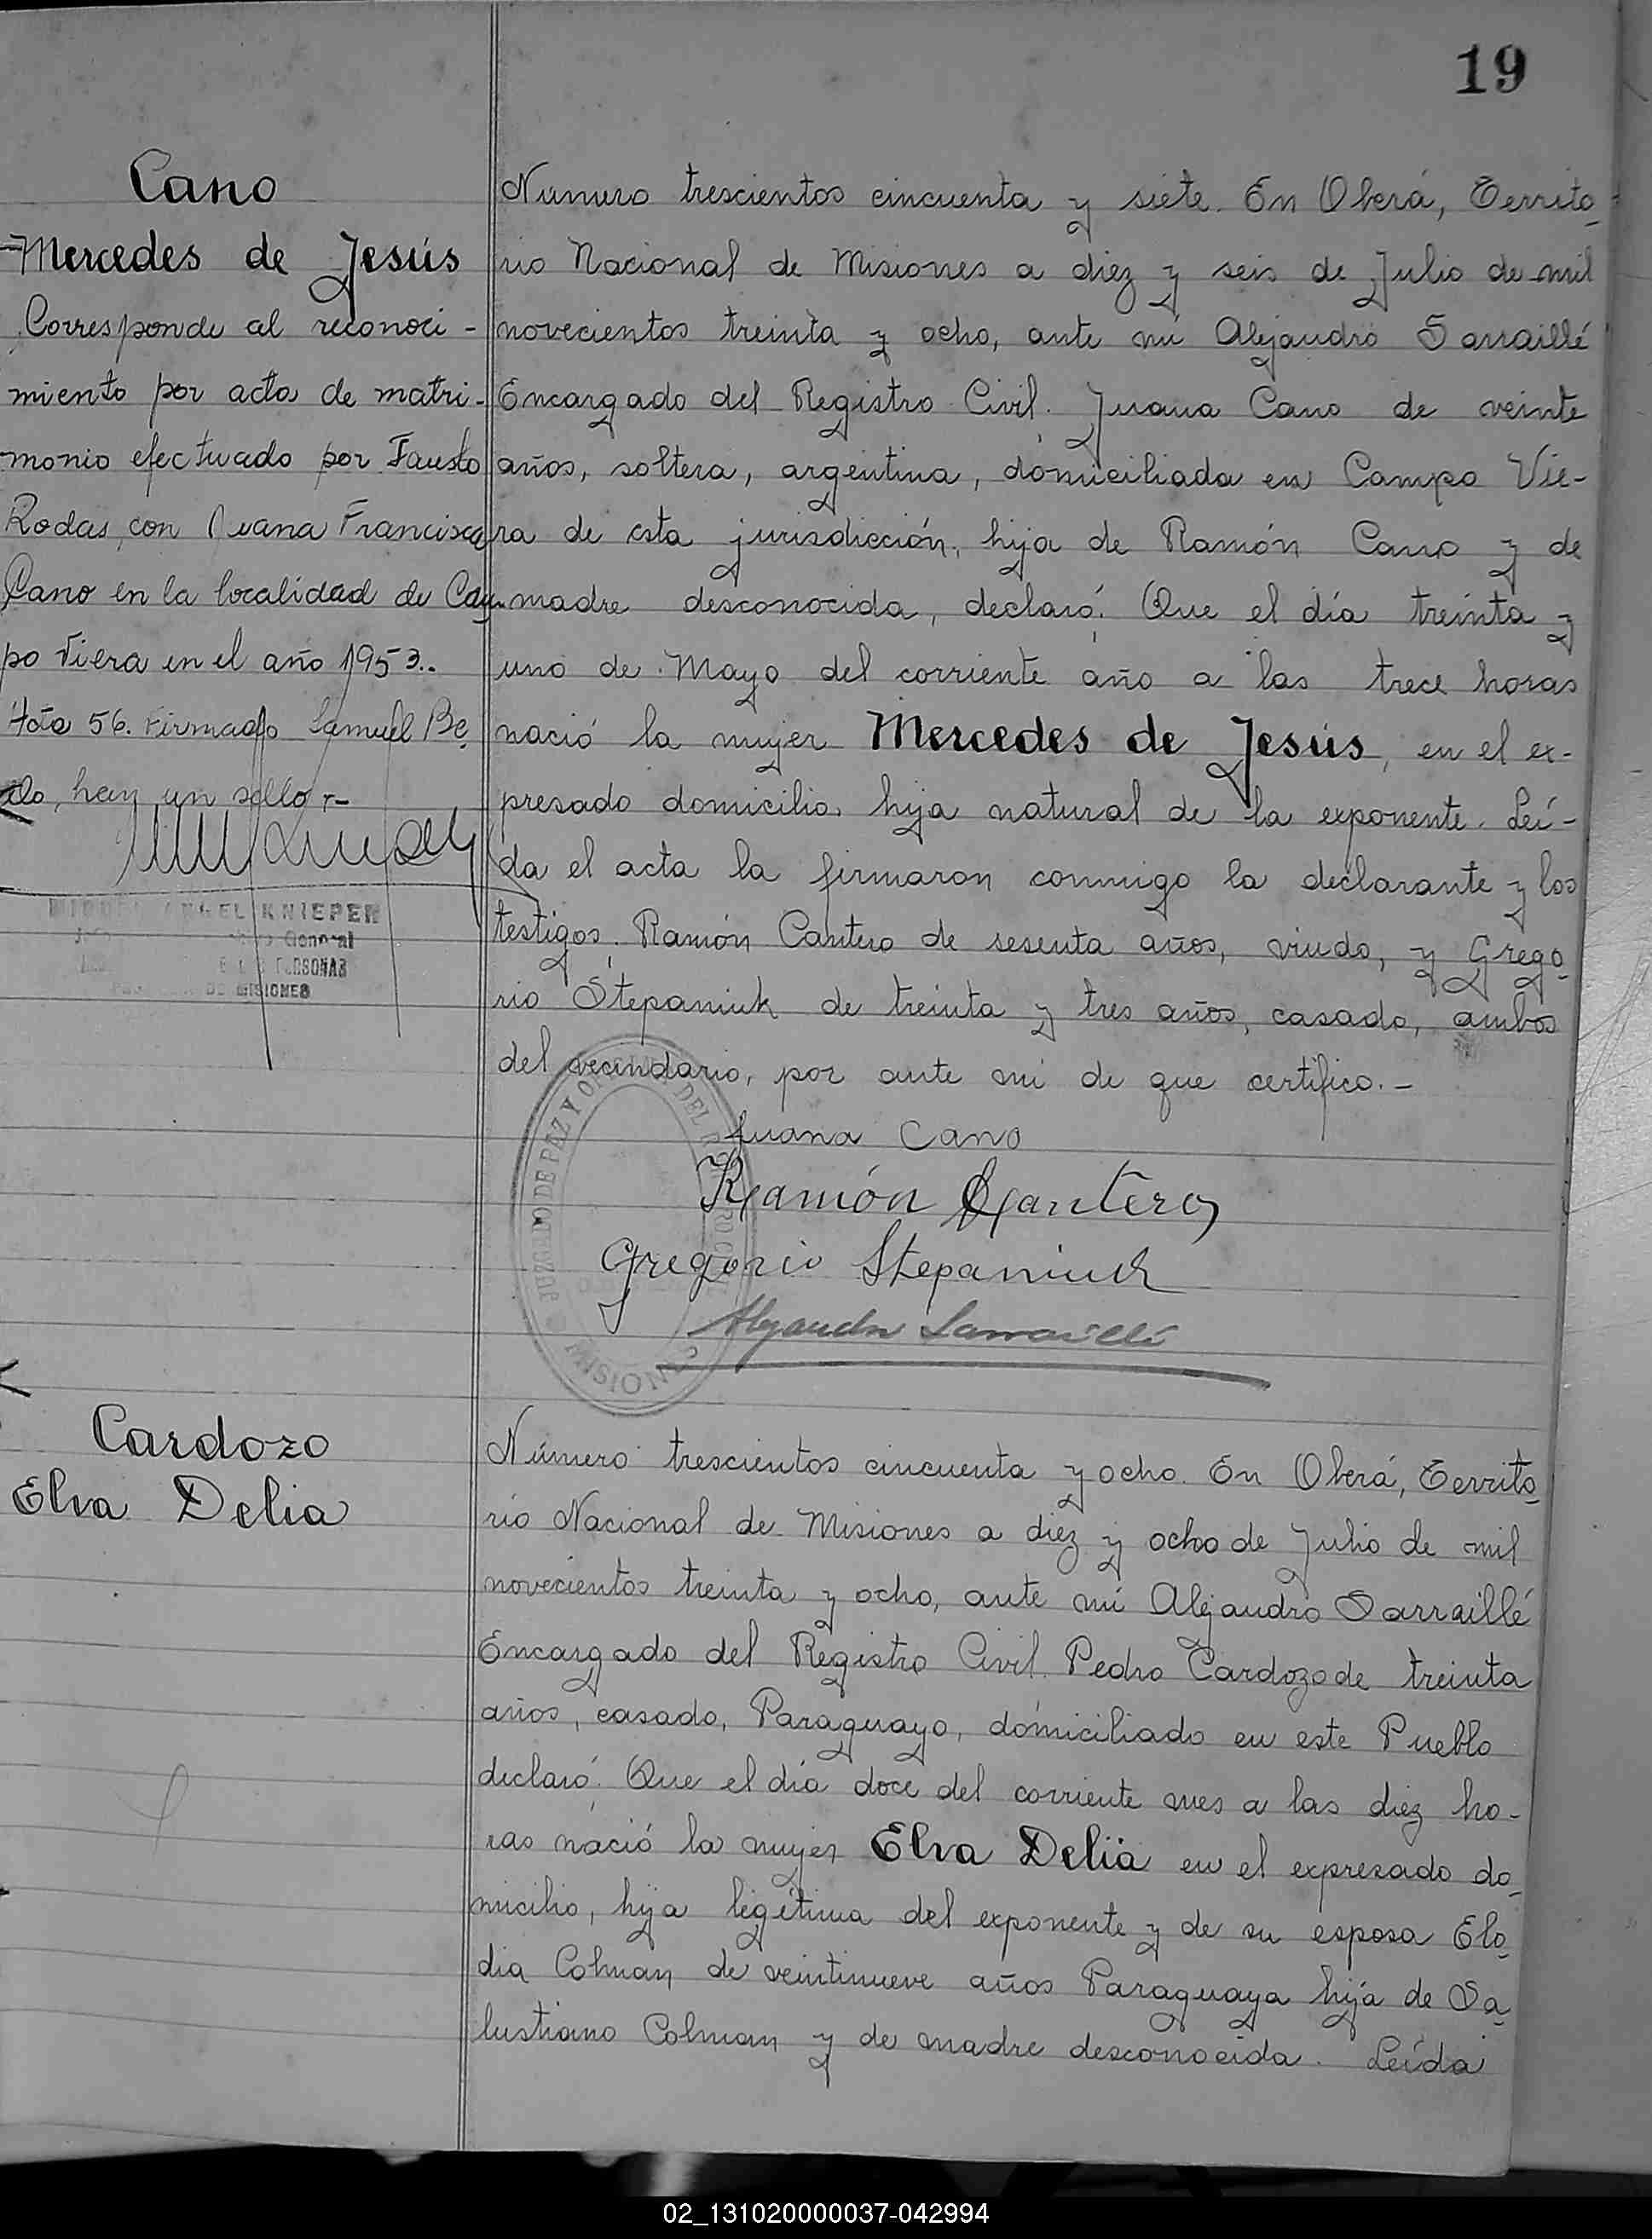 19
Cano
Mercedes de Jesús
Corresponde al reconoci-
miento por acta de matri-
monio efectuado por Fausto
Rodas, con Juana Francisca
Cano en la localidad de Cam-
po Viera en el año 1953..
Acta 56. Firmado Samuel Be
do, hay un sello.-
MIGUEL ANGEL KNIEPER
General
PERSONAS
DE MISIONES
Número trescientos cincuenta y siete. En Oberá, Territo-
rio Nacional de Misiones a diez y seis de Julio de mil
novecientos treinta y ocho, ante mí Alejandro Sarraillé
Encargado del Registro Civil. Juana Cano de veinte
años, soltera, argentina, domiciliada en Campo Vie-
ra de esta jurisdicción, hija de Ramón Cano y de
madre desconocida, declaró: Que el día treinta y
uno de Mayo del corriente año a las trece horas
nació la mujer Mercedes de Jesús, en el ex-
presado domicilio, hija natural de la exponente. Leí-
da el acta la firmaron conmigo la declarante y los
testigos: Ramón Cantero de sesenta años, viudo, y Grego-
rio Stepaniuk de treinta y tres años, casado, ambos
del vecindario, por ante mi de que certifico.-
Juana Cano
Ramón Cantero
Gregorio Stepaniuk
Alejandro Sarraillé
JUZGADO DE PAZ Y OFICINA DEL REGISTRO CIVIL
MISIONES
Cardozo
Elva Delia
Número trescientos cincuenta y ocho. En Oberá, Territo-
rio Nacional de Misiones a diez y ocho de Julio de mil
novecientos treinta y ocho, ante mí Alejandro Sarraillé
Encargado del Registro Civil. Pedro Cardozo de treinta
años, casado, Paraguayo, domiciliado en este Pueblo
declaró: Que el día doce del corriente mes a las diez ho-
ras nació la mujer Elva Delia en el expresado do-
micilio, hija legítima del exponente y de su esposa Elo-
dia Colman de veintinueve años Paraguaya hija de Sa-
lustiano Colman y de madre desconocida. Leída
02_131020000037-042994